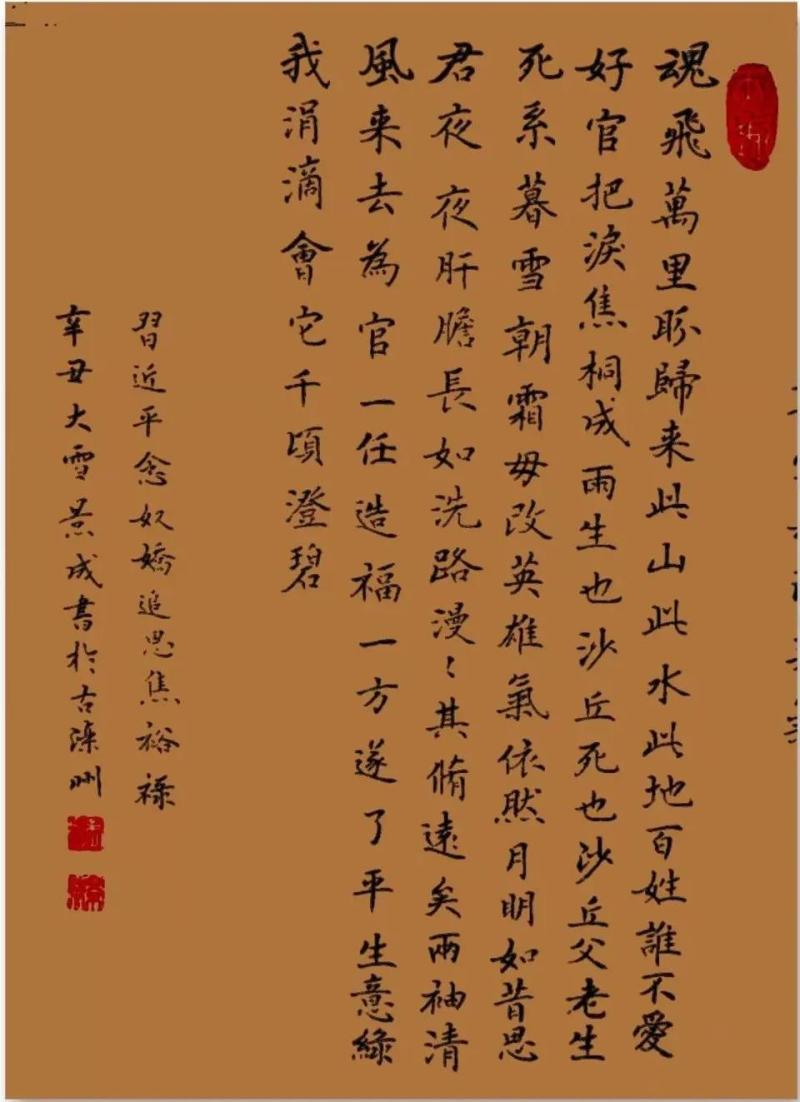 魂飛萬里盼歸来此山此水此地百姓誰不愛
好官把淚焦桐成雨生也沙丘死也沙丘父老生
死系暮雪朝霜毋改英雄氣依然月明如昔思
君夜夜肝膽長如洗路漫〻其脩遠矣兩袖清
風来去為官一任造福一方遂了平生意綠
我涓滴會它千頃澄碧
習近平念奴嬌追思焦裕禄
辛丑大雪景成書於古滦州